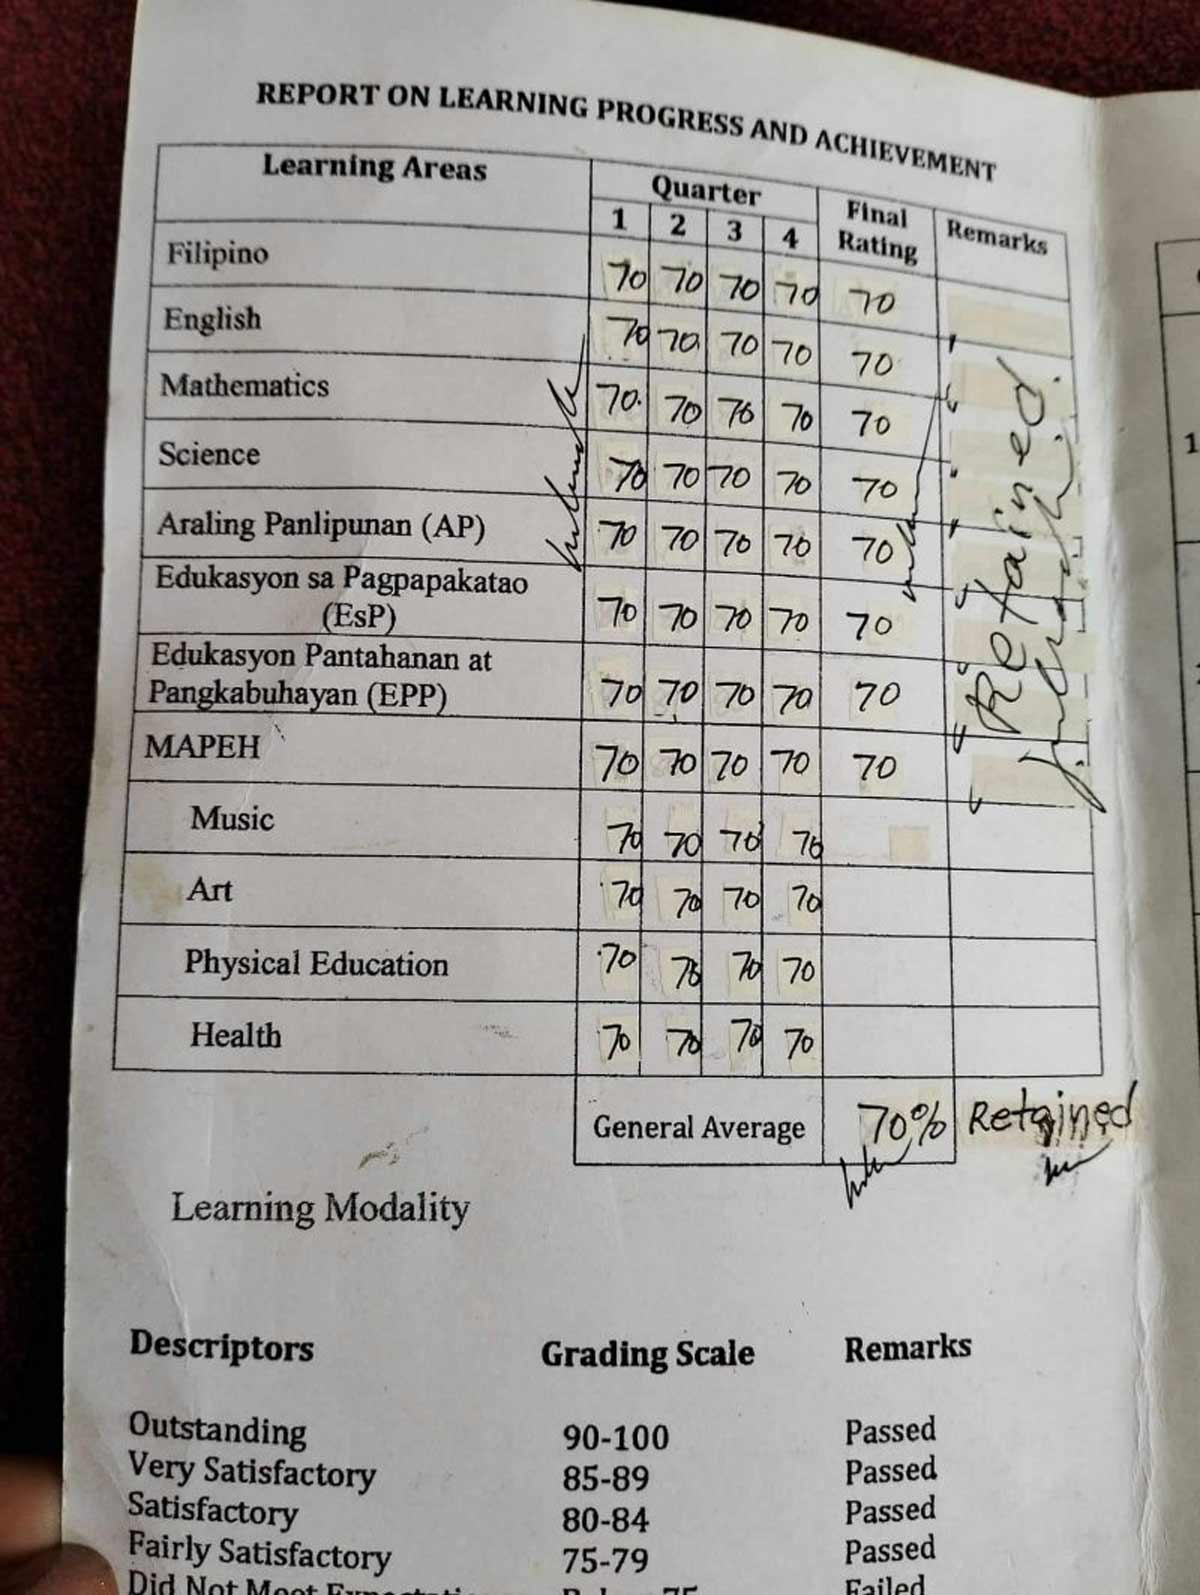 REPORT ON LEARNING PROGRESS AND ACHIEVEMENT
Learning Areas Quarter Final Rating Remarks
1 2 3 4
Filipino 70 70 70 70 70
English 70 70 70 70 70
Mathematics 70 70 70 70 70
Science 70 70 70 70 70
Araling Panlipunan (AP) 70 70 70 70 70
Edukasyon sa Pagpapakatao
(EsP) 70 70 70 70 70
Edukasyon Pantahanan at
Pangkabuhayan (EPP) 70 70 70 70 70
MAPEH 70 70 70 70 70
Retained
Music 70 70 70 70
Art 70 70 70 70
Physical Education 70 70 70 70
Health 70 70 70 70
General Average 70% Retained
Learning Modality
Descriptors Grading Scale Remarks
Outstanding 90-100 Passed
Very Satisfactory 85-89 Passed
Satisfactory 80-84 Passed
Fairly Satisfactory 75-79 Passed
Did Not Meet 75 Failed